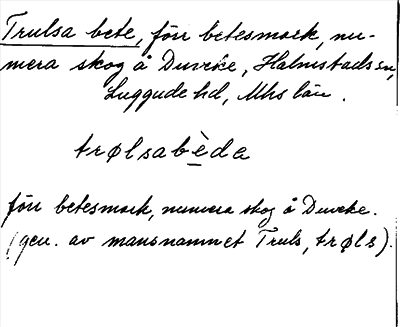 Trulsa bete, förr betesmark, nu-
mera skog å Duveke, Halmstads sn,
Luggude hd, Mhs län.
trølsabèda
förr betesmark, numera skog å Duveke.
(gen. av mansnamnet Truls, trøls).